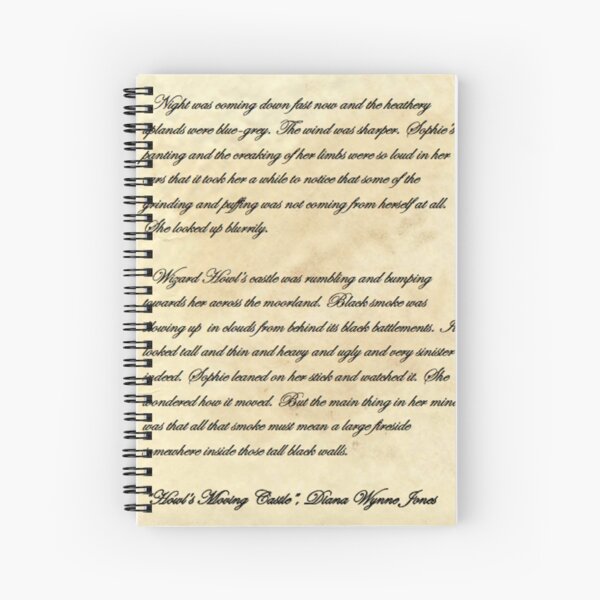 Night was coming down fast now and the heathery
uplands were blue-grey. The wind was sharper. Sophie's
panting and the creaking of her limbs were so loud in her
ears that it took her a while to notice that some of the
grinding and puffing was not coming from herself at all.
She looked up blurrily.
Wizard Howl's castle was rumbling and bumping
towards her across the moorland. Black smoke was
blowing up in clouds from behind its black battlements. It
looked tall and thin and heavy and ugly and very sinister
indeed. Sophie leaned on her stick and watched it. She
wondered how it moved. But the main thing in her mind
was that all that smoke must mean a large fireside
somewhere inside those tall black walls.
"Howl's Moving Castle", Diana Wynne Jones